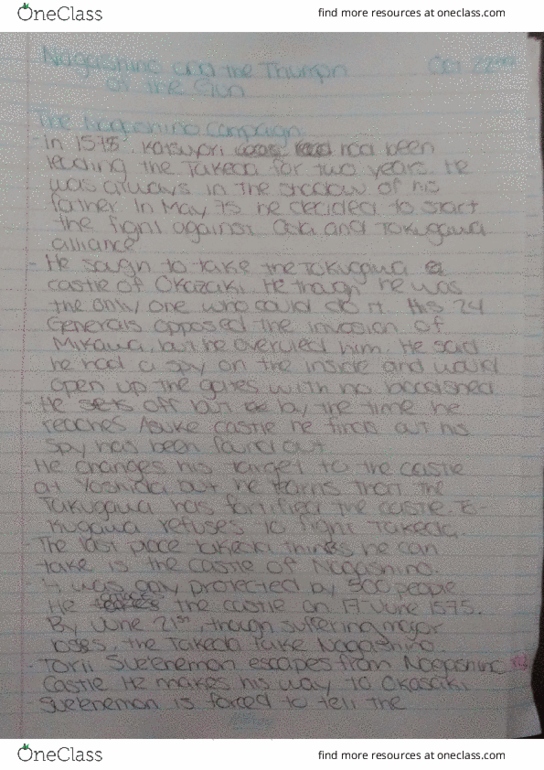 OneClass
find more resources at oneclass.com
Nagashino and the Triumph
Oct 22nd
of the Gun
The Nagashino Campaign
- In 1575, Katsuyori had been
leading the Takeda for two years. He
was always in the shadow of his
father. In May 75 he decided to start
the fight against Oda and Tokugawa
alliance
- He sough to take the Tokugawa
castle of Okazaki. He though he was
the only one who could do it. His 24
Generals opposed the invasion of
Mikawa, but he overuled him. He said
he had a spy on the inside and would
open up the gates with no bloodshed
- He sets off but by the time he
reaches Asuke castle he finds out his
spy has been found out.
He changes his target to the castle
at Yoshida but he learns that the
Tokugawa has fortified the castle. To-
kugawa refuses to fight Takeda.
- The last place takeda thinks he can
take is the castle of Nagashino.
- It was only protected by 500 people
He the castle on 17 June 1575.
By June 21st, though suffering major
loses, the Takeda take Nagashino.
- Torii Sune'enemon escapes from Nagashino
Castle. He makes his way to Okasaki.
Sune'enemon is forced to tell the
OneClass
find more resources at oneclass.com